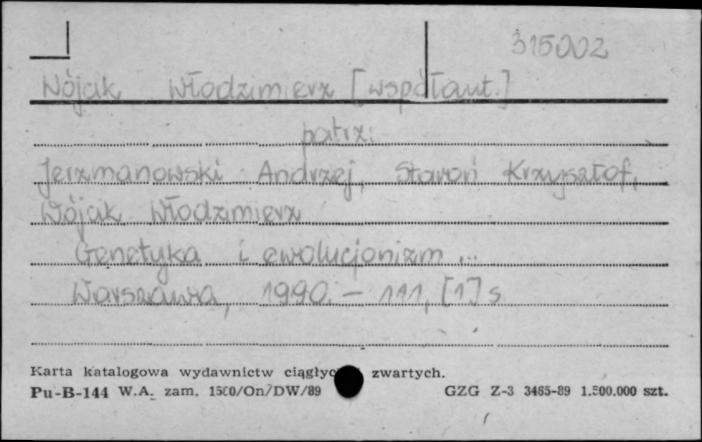 315002
Wójak Włodzimierz [współaut.]
patrz:
Jerzmanowski Andrzej, Staroń Krzysztof,
Wójak Włodzimierz
Genetyka i ewolucjonizm ...
Warszawa, 1990. – 111, [1] s.
Karta katalogowa wydawnictw ciągłyc zwartych.
Pu-B-144 W.A. zam. 1500/On/DW/89 GZG Z-3 3465-89 1.500.000 szt.